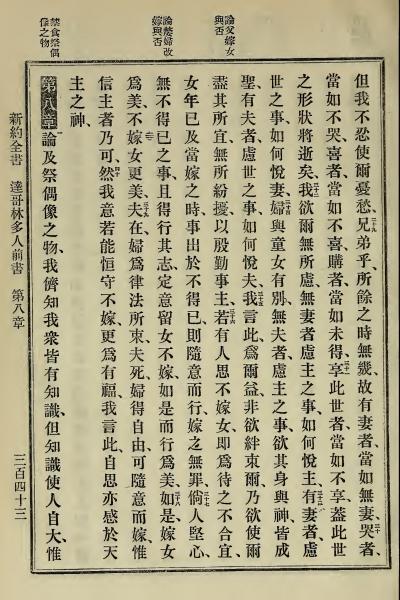 論父嫁女
與否
論嫠婦改
嫁與否
禁食祭偶
像之物
但我不忍使爾憂愁、二十九兄弟乎、所餘之時無幾、故有妻者、當如無妻、三十哭者、
當如不哭、喜者、當如不喜、購者、當如未得、三十一享此世者、當如不享、蓋此世
之形狀將逝矣、三十二我欲爾無所慮、無妻者慮主之事、如何悅主、三十三有妻者慮
世之事、如何悅妻、三十四婦與童女有別、無夫者慮主之事、欲其身與神皆成
聖、有夫者慮世之事、如何悅夫、三十五我言此、為爾益、非欲絆束爾、乃欲使爾
盡其所宜、無所紛擾、以殷勤事主、三十六若有人思不嫁女、即為待之不合宜、
女年已及當嫁之時、事出於不得已、則隨意而行、嫁之無罪、三十七倘人堅心、
無不得已之事、且得行其志、定意留女不嫁、如是而行為美、三十八如是、嫁女
為美、不嫁女更美、三十九夫在、婦為律法所束、夫死、婦得自由、可隨意而嫁、惟
信主者乃可、四十然我意若能恒守不嫁、更為有福、我言此、自思亦感於天
主之神、
第八章 一論及祭偶像之物、我儕知我衆皆有知識、但知識使人自大、惟
新約全書 達哥林多人前書 第八章 三百四十三